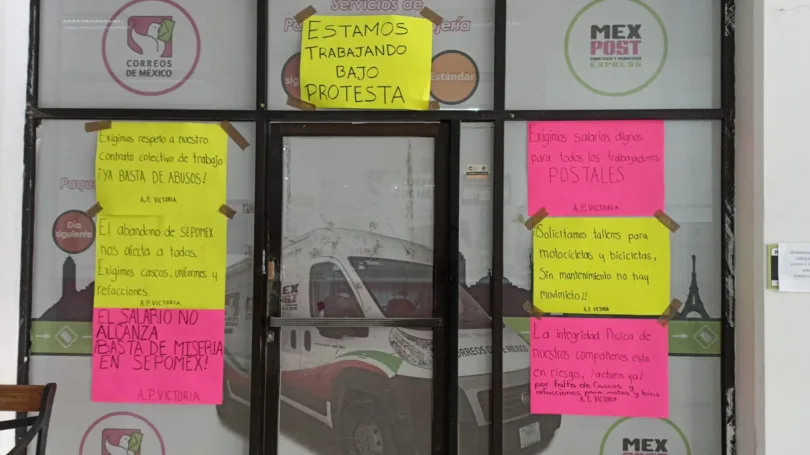 CORREOS
DE MÉXICO
Servicios de
ESTAMOS
TRABAJANDO
BAJO
PROTESTA
Estándar
MEX
POST
EXPRESS
Exigimos respeto a nuestro
contrato colectivo de trabajo
¡YA BASTA DE ABUSOS!
A.P. VICTORIA
Día
siguiente
El abandono de SEPOMEX
nos afecta a todos.
Exigimos cascos, uniformes y
refacciones.
A.P VICTORIA
EL SALARIO NO
ALCANZA
¡BASTA DE MISERIA
EN SEPOMEX!
A.P. VICTORIA
Exigimos salarios dignos
para todos los trabajadores
POSTALES
A.P. VICTORIA
Solicitamos talleres para
motocicletas y bicicletas,
Sin mantenimiento no hay
movimieto!!
A.P. VICTORIA
La integridad Física de
nuestros compañeros esta
en riesgo, ¡actuen ya!
por falta de Cascos y
refacciones para motos y bicis
A.P. VICTORIA
MEX
POST
CORREOS DE MÉXICO
MEX
POST